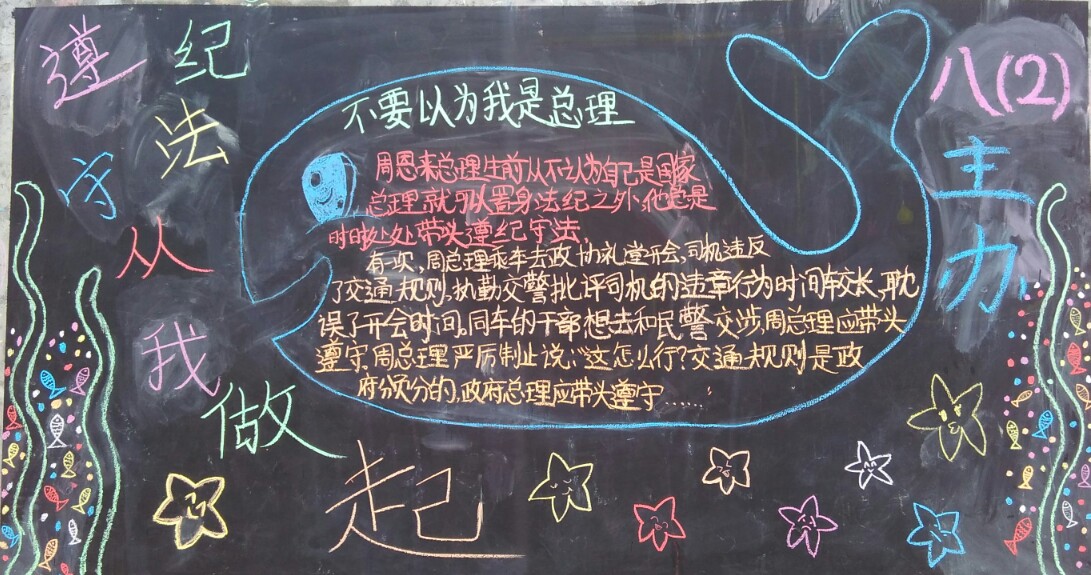 遵纪守法从我做起
八(2)主办
不要以为我是总理
周恩来总理生前从不认为自己是国家
总理就可以置身法纪之外,他总是
时时处处带头遵纪守法。
有一次,周总理乘车去政协礼堂开会,司机违反
了交通规则,执勤交警批评司机的违章行为时间较长,耽
误了开会时间,同车的干部想去和民警交涉,周总理应带头
遵守,周总理严厉制止说:“这怎么行?交通规则是政
府颁分的,政府总理应带头遵守……”